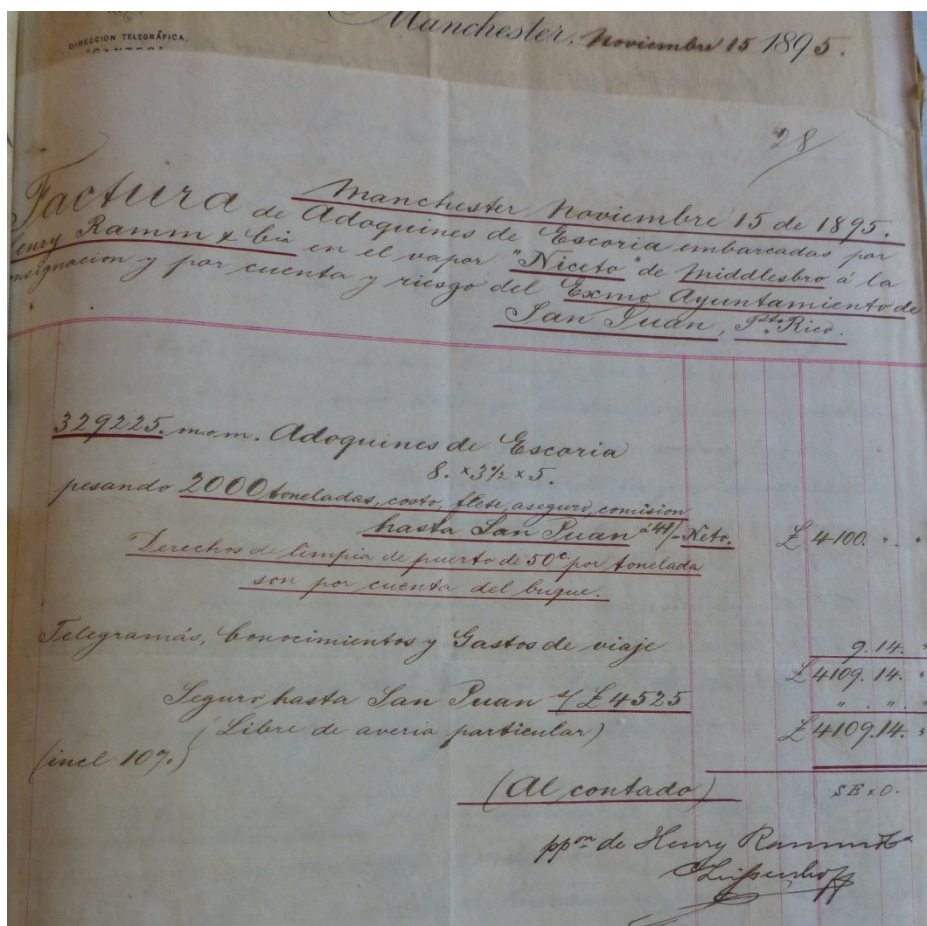 DIRECCION TELEGRÁFICA,
Manchester, Noviembre 15 1895.
28/
Manchester Noviembre 15 de 1895.
Factura de Adoquines de Escoria embarcadas por
Henry Ramm & Cia en el vapor "Niceto" de Middlesbro á la
consignacion y por cuenta y riesgo del Exmo Ayuntamiento de
San Juan, Pto. Rico.
329225. m.o.m. Adoquines de Escoria
8. x 3½ x 5.
pesando 2000 toneladas, costo, flete, aseguro, comision
hasta San Juan á 41/- Neto. £ 4100. " . "
Derechos de limpia de puerto de 50c por tonelada
son por cuenta del buque.
Telegramás, Conocimientos y Gastos de viaje 9. 14. "
£ 4109. 14. "
Seguro hasta San Juan s/ £4525 " . " . "
(Libre de averia particular) £ 4109. 14. "
(incl 10%)
(Al contado) S E u O.
ppon de Henry Ramm & Co